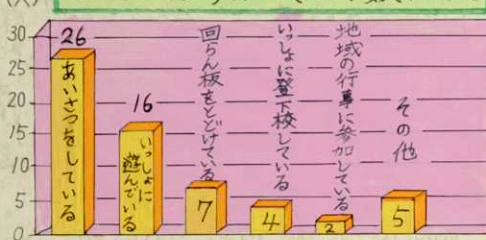 (人)
30
25
20
15
10
5
0
26
あいさつをしている
16
いっしょに
遊んでいる
回らん板をとどけている
7
いっしょに登下校している
4
地域の行事に参加している
2
その他
5